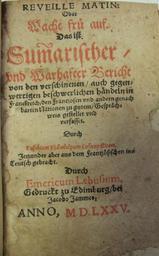 REVEILLE MATIN:
Oder
Wache frü auf.
Das ist
Sumarischer/
vnd Warhafter Bericht
von den verschinenen/ auch gegen-
wertigen beschwerlichen händeln in
Franckreich/ den Frantzosen vnd andern genach
barten Nationen zu gutem/ Gespräch-
weis gestellet vnd
verfasset.
Durch
Eusebium Philadelphum
Jetzunder aber aus dem Frantzösischen ins
Teutsch gebracht.
Durch
Emericum Lebusium.
Gedruckt zu Edimburg/ bei
Jacobo Jammes.
ANNO, M. D. LXXV.